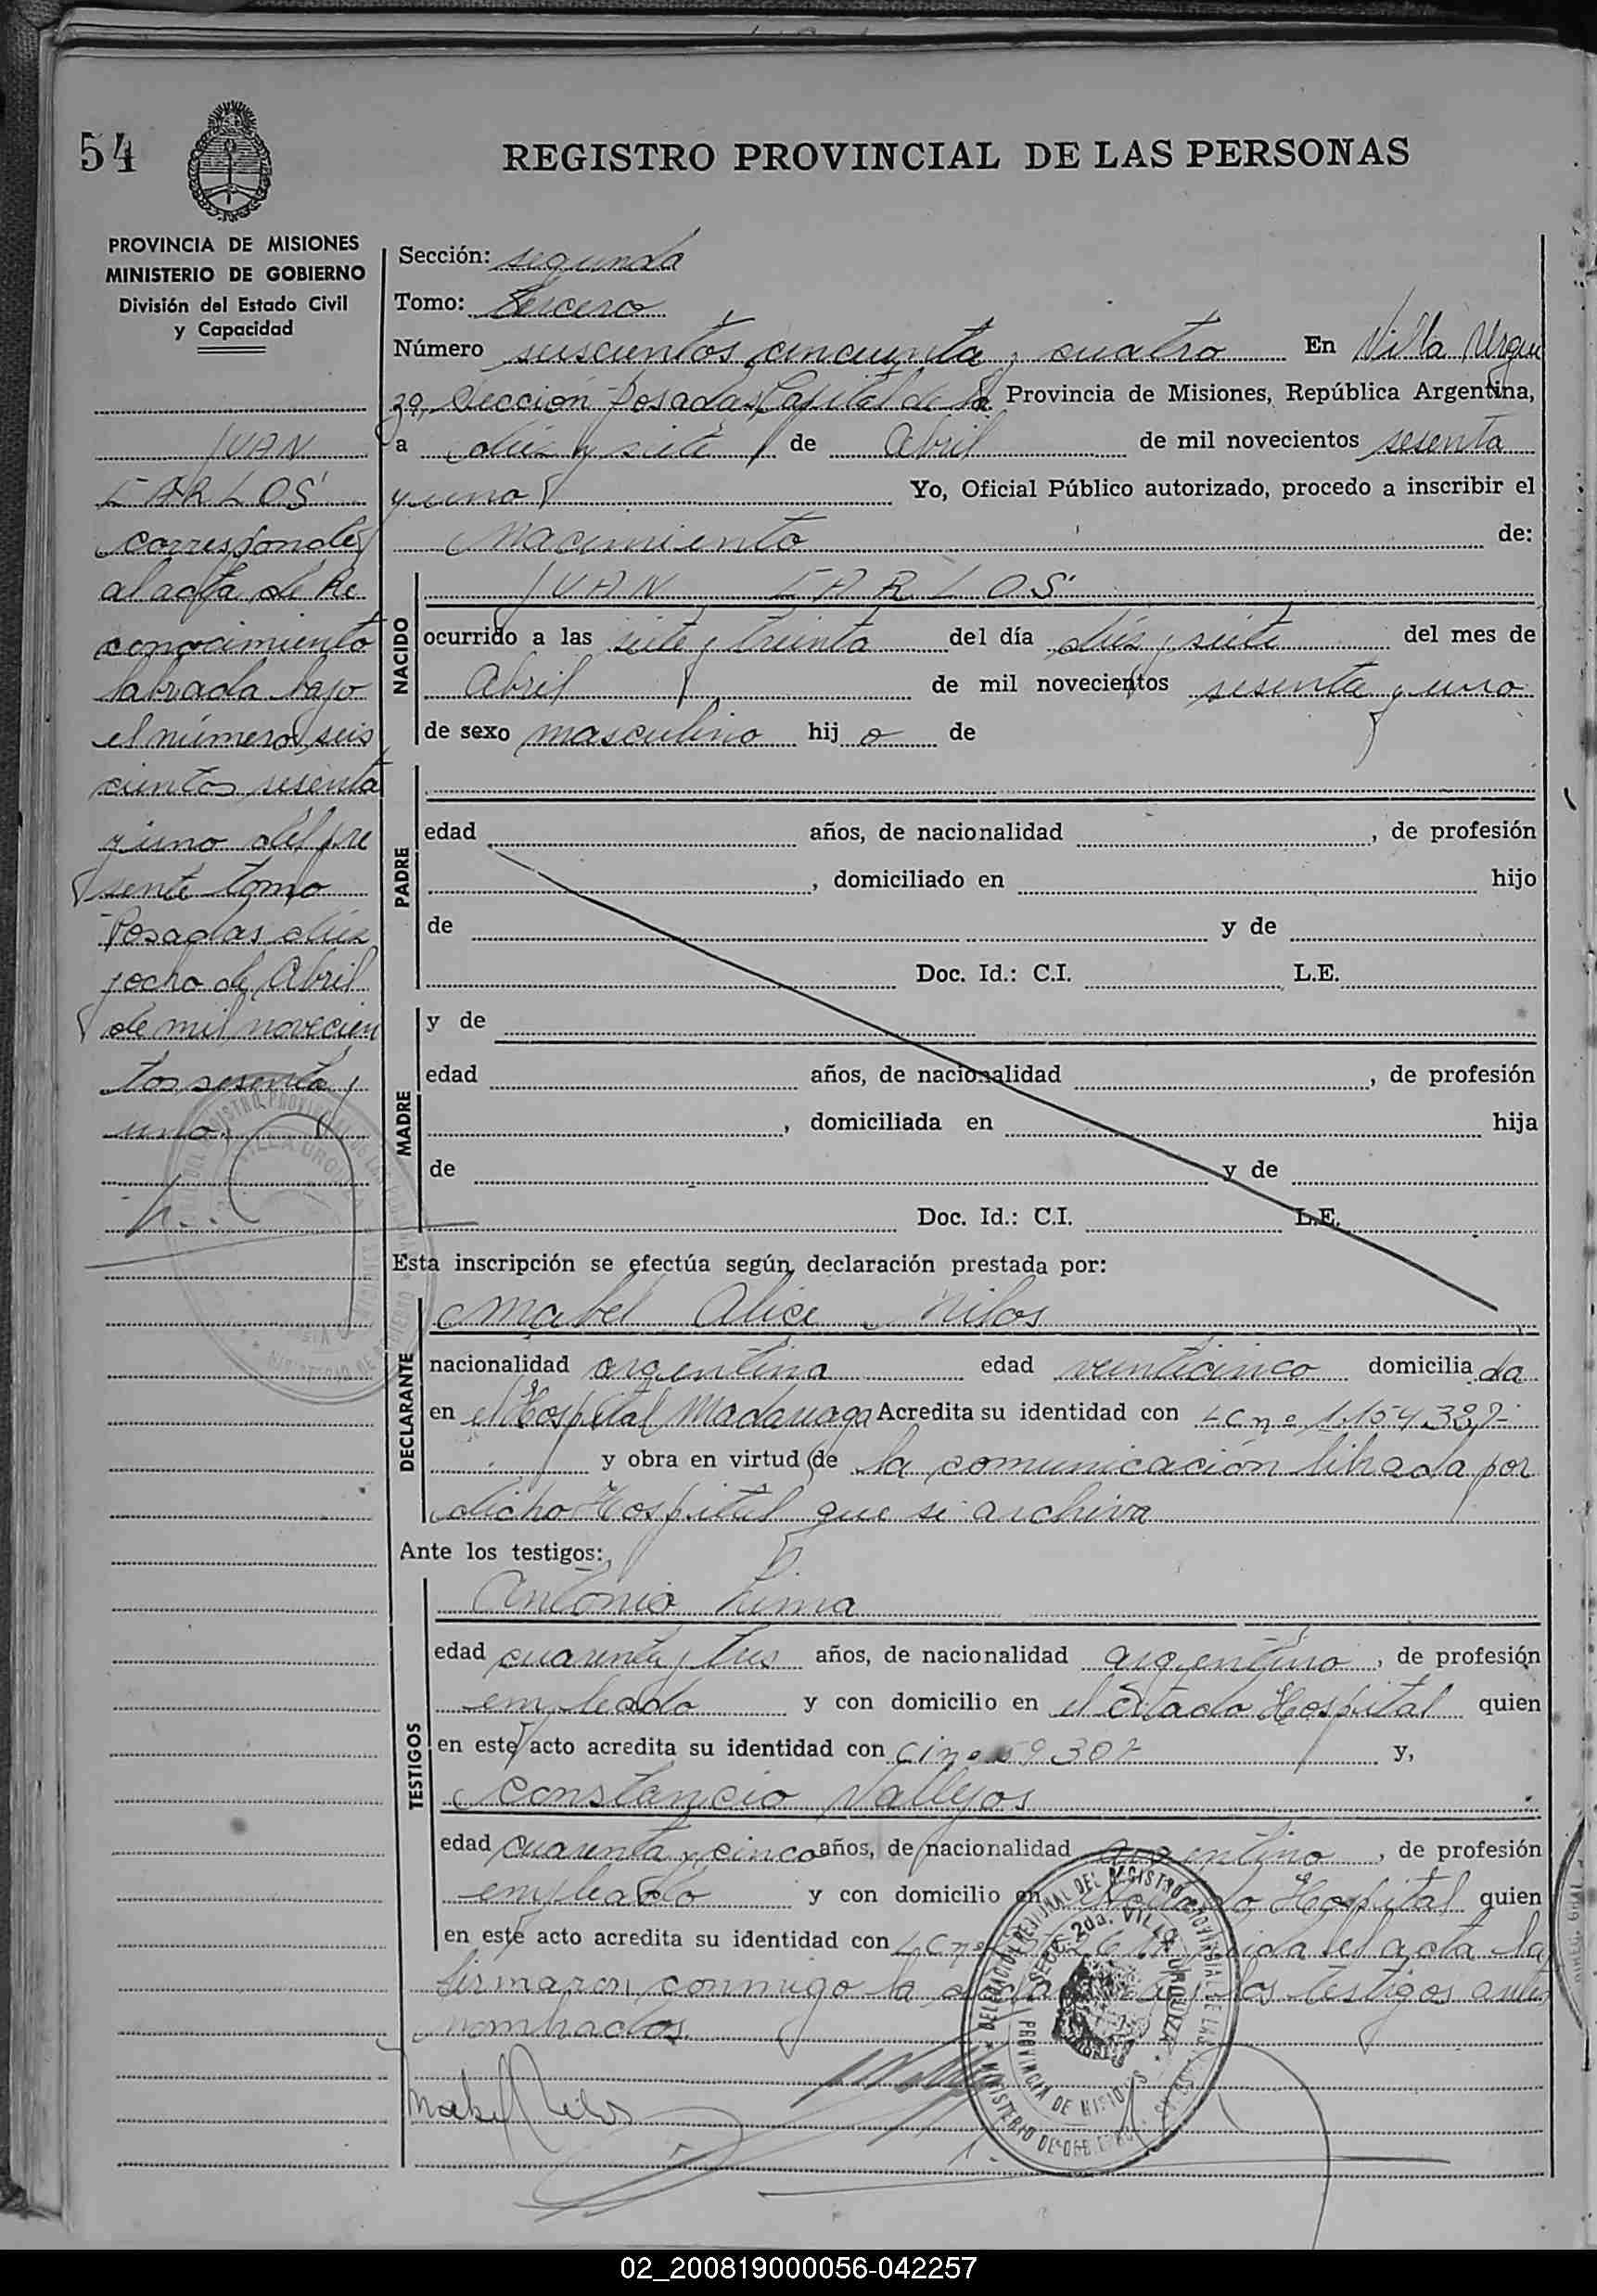 54
REGISTRO PROVINCIAL DE LAS PERSONAS
PROVINCIA DE MISIONES
MINISTERIO DE GOBIERNO
División del Estado Civil
y Capacidad
JUAN
CARLOS
corresponde
al acta de Re
conocimiento
labrada bajo
el número seis
cientos sesenta
y uno del pre
sente tomo
Posadas diez
y ocho de Abril
de mil novecien
tos sesenta y
uno.
Sección: segunda
Tomo: Tercero
Número seiscientos cincuenta y cuatro En Villa Urqui
za, Sección Posadas, Capital de la Provincia de Misiones, República Argentina,
a diez y siete de Abril de mil novecientos sesenta
y uno Yo, Oficial Público autorizado, procedo a inscribir el
Nacimiento de:
NACIDO
JUAN CARLOS
ocurrido a las siete y treinta del día diez y siete del mes de
Abril de mil novecientos sesenta y uno
de sexo masculino hij o de
PADRE
edad años, de nacionalidad , de profesión
, domiciliado en hijo
de y de
Doc. Id.: C.I. L.E.
MADRE
y de
edad años, de nacionalidad , de profesión
, domiciliada en hija
de y de
Doc. Id.: C.I. L.E.
Esta inscripción se efectúa según declaración prestada por:
DECLARANTE
Mabel Alice Nilos
nacionalidad argentina edad veinticinco domicilia da
en el Hospital Madariaga Acredita su identidad con LC nº
y obra en virtud de la comunicación librada por
dicho Hospital que se archiva
Ante los testigos:
TESTIGOS
Antonio Lima
edad cuarenta y tres años, de nacionalidad argentino, de profesión
empleado y con domicilio en el citado Hospital quien
en este acto acredita su identidad con y,
Constancio Vallejos
edad cuarenta y cinco años, de nacionalidad argentino, de profesión
empleado y con domicilio en Hospital quien
en este acto acredita su identidad con el acta la
firmaron conmigo la los testigos ante
nombrados.
DELEGACION REGIONAL DEL REGISTRO PROVINCIAL DE LAS
SECC. 2da. VILLA URQUIZA
PROVINCIA DE MISIONES
MINISTERIO DE GOBIERNO
02_200819000056-042257